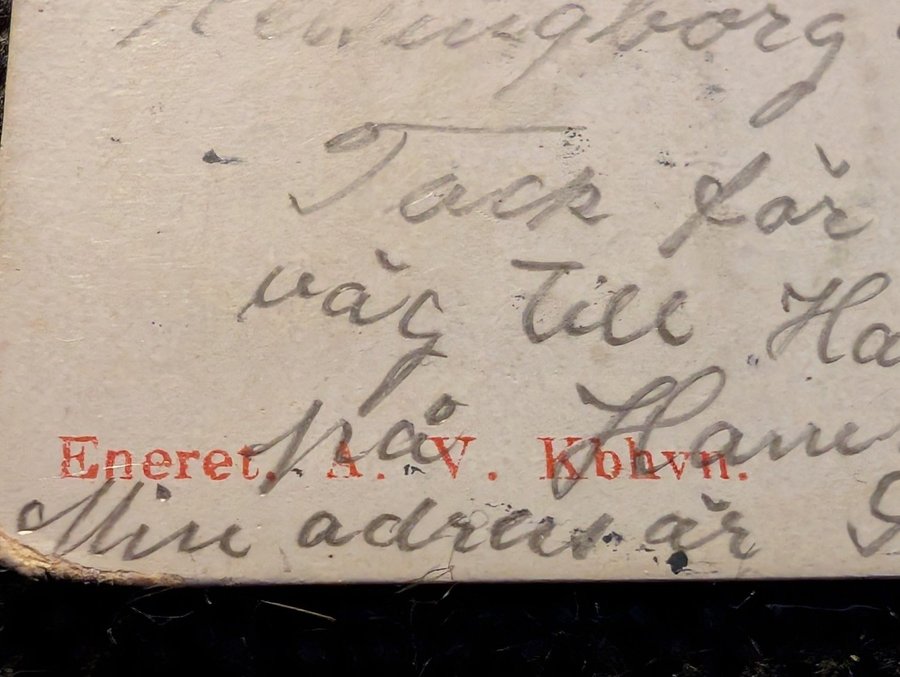 Helsingborg
Tack för
väg till Ha
på Ham
Eneret. A. V. Kbhvn.
Min adress är